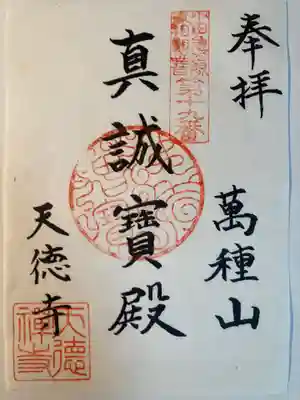 奉拝
萬種山
真誠寶殿
天徳寺
天徳禅寺